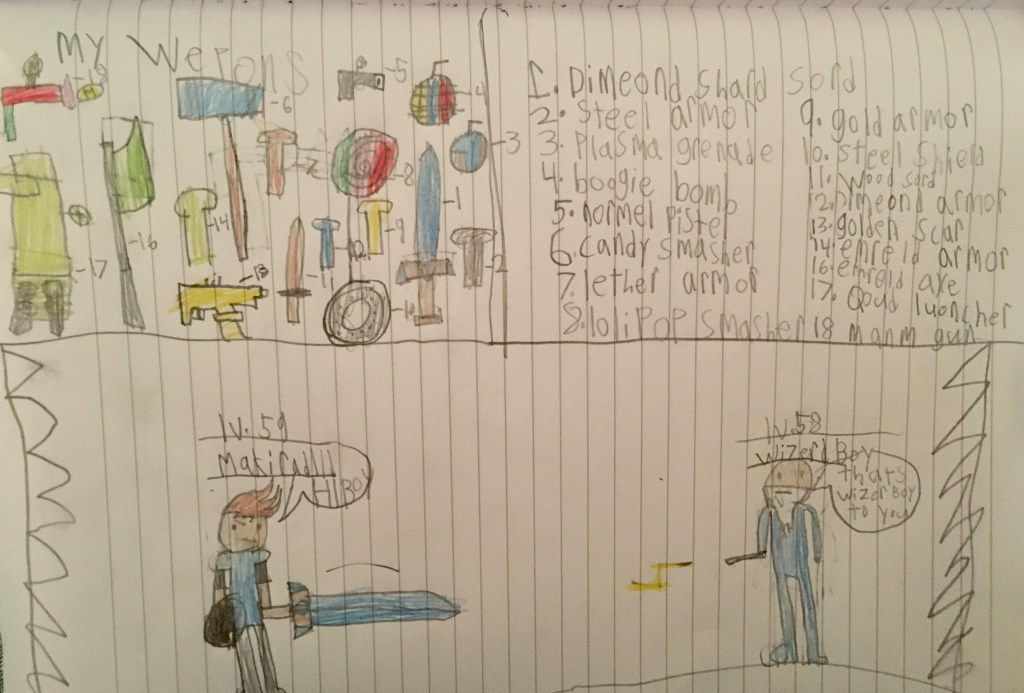 My Werons
1. Dimeond shard sord
2. steel armor
3. Plasma grenade
4. boogie bomb
5. normel pistel
6. candy smasher
7. lether armor
8. loliPoP smasher
9. gold armor
10. steel shield
11. Wood sord
12. Dimeond armor
13. golden scar
14. emreld armor
16. emrold axe
17. Goud luoncher
18 manm gun
-5
-6
-4
-3
-2
-8
-1
-14
-9
-16
-17
-13
lv. 59
HI BOI
lv. 58
Wizerd Boy
thats
wizerBoy
to you